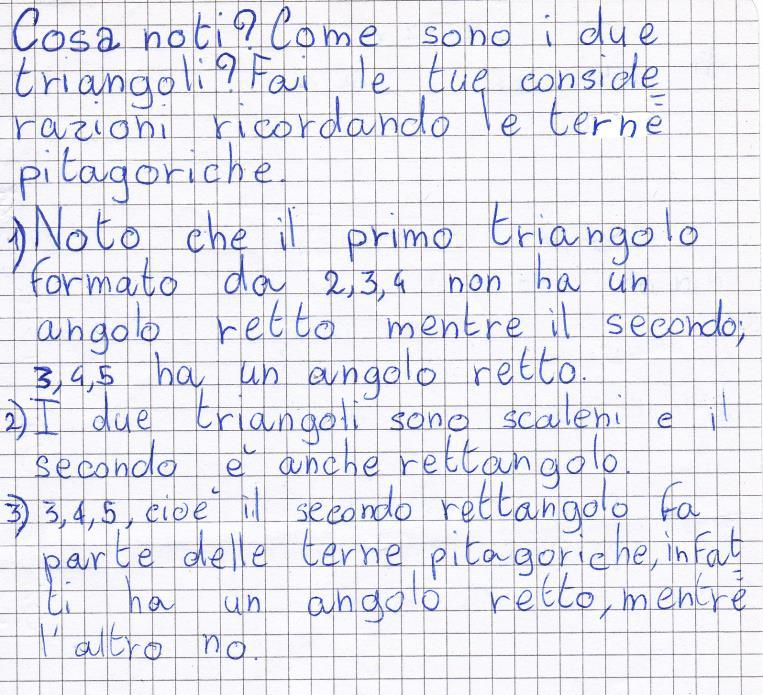 Cosa noti? Come sono i due
triangoli? Fai le tue conside
razioni ricordando le terne
pitagoriche.
1) Noto che il primo triangolo
formato da 2,3,4 non ha un
angolo retto mentre il secondo;
3,4,5 ha un angolo retto.
2) I due triangoli sono scaleni e il
secondo è anche rettangolo.
3) 3,4,5, cioè il secondo rettangolo fa
parte delle terne pitagoriche, infat
ti ha un angolo retto, mentre
l'altro no.